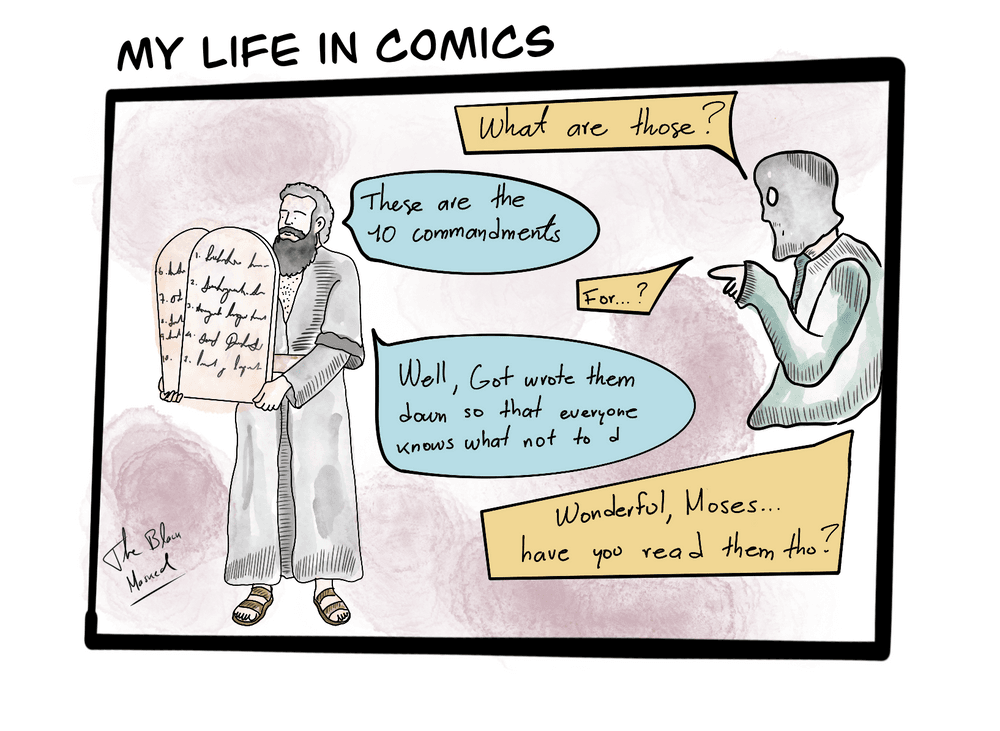 MY LIFE IN COMICS
What are those?
These are the
10 commandments
For...?
Well, Got wrote them
down so that everyone
knows what not to d
Wonderful, Moses...
have you read them tho?
6.
1.
7.
2.
3.
4.
10.
The Black